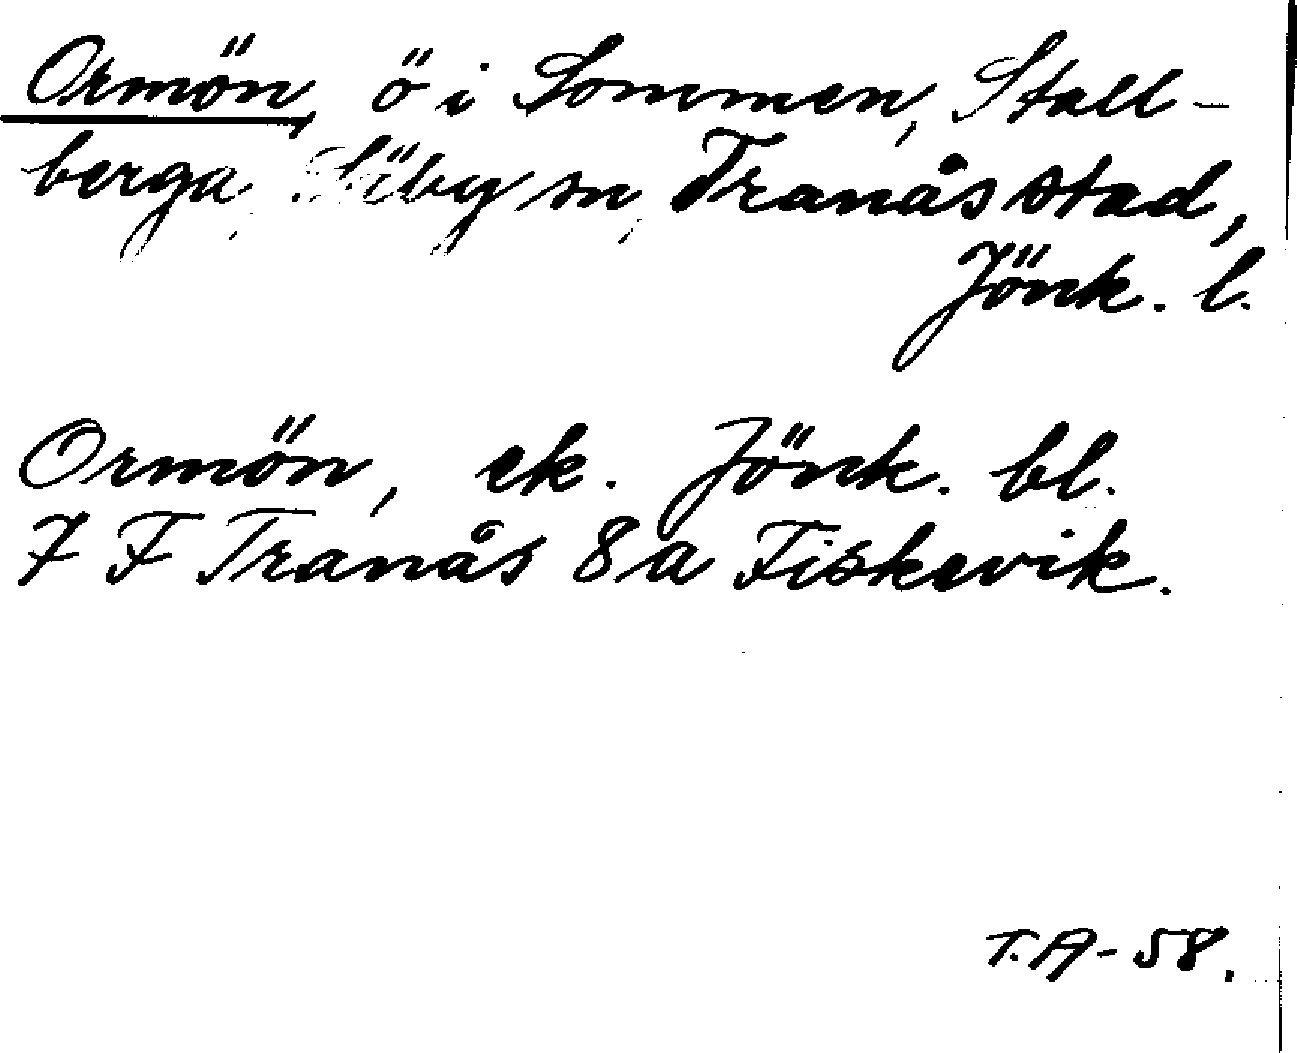 Ormön, ö i Sommen, Stall-
berga, Säby sn, Tranås stad,
Jönk. l.
Ormön, ek. Jönk. bl.
7 F Tranås 8 a Fiskevik.
T.A-58.